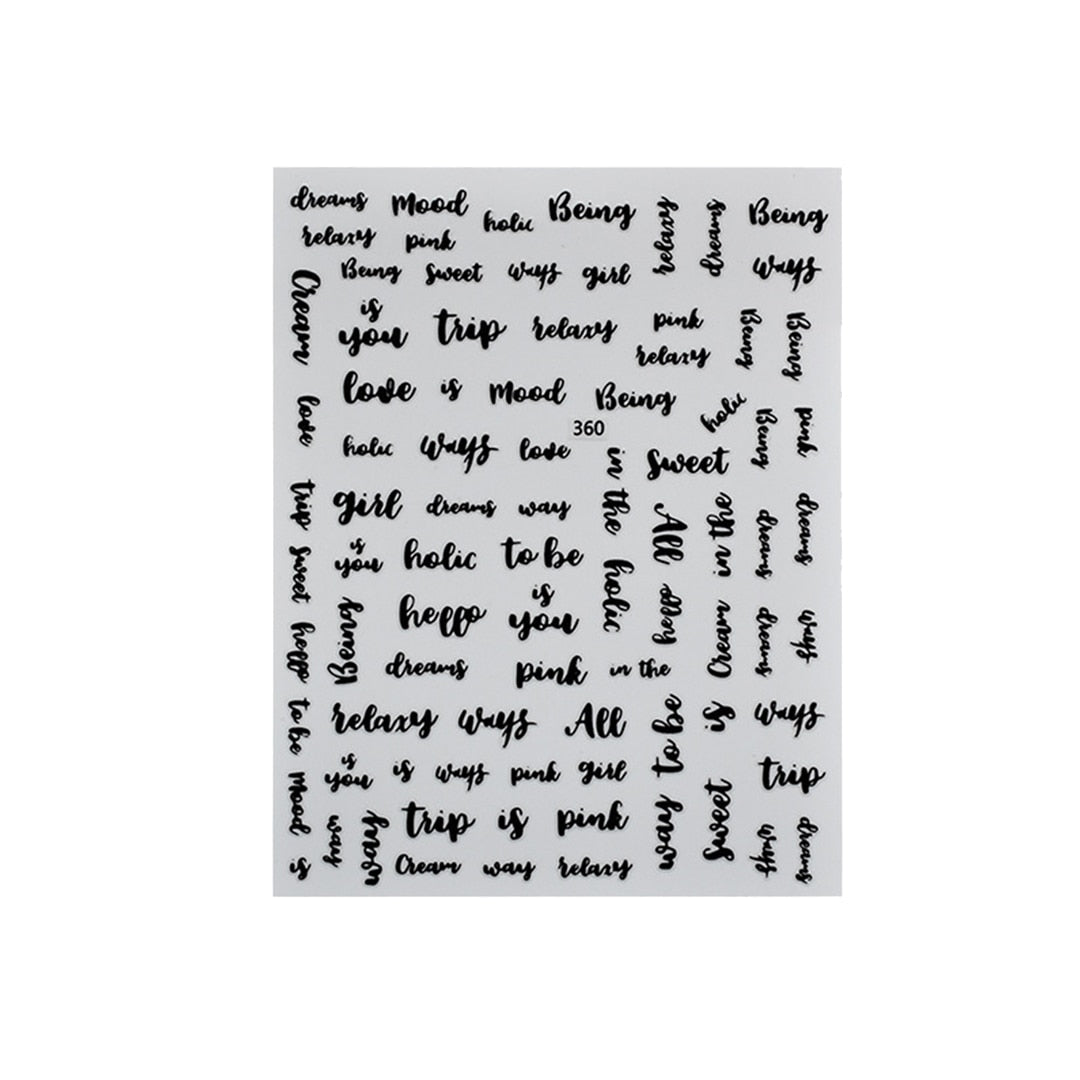 dreams Mood holic Being relaxy dreams Being
relaxy pink
Being sweet ways girl ways
Cream
is
you trip relaxy pink Being Being
relaxy
love is Mood Being holic
360
love holic ways love in the sweet Being pink
trip girl dreams way All in the dreams dreams
is
you holic to be holic
sweet
hello Being hello is
you hello Cream dreams ways
dreams pink in the
to be relaxy ways All to be is ways
is
you is ways pink girl trip
Mood trip is pink way sweet
way way ways dreams
is Cream way relaxy